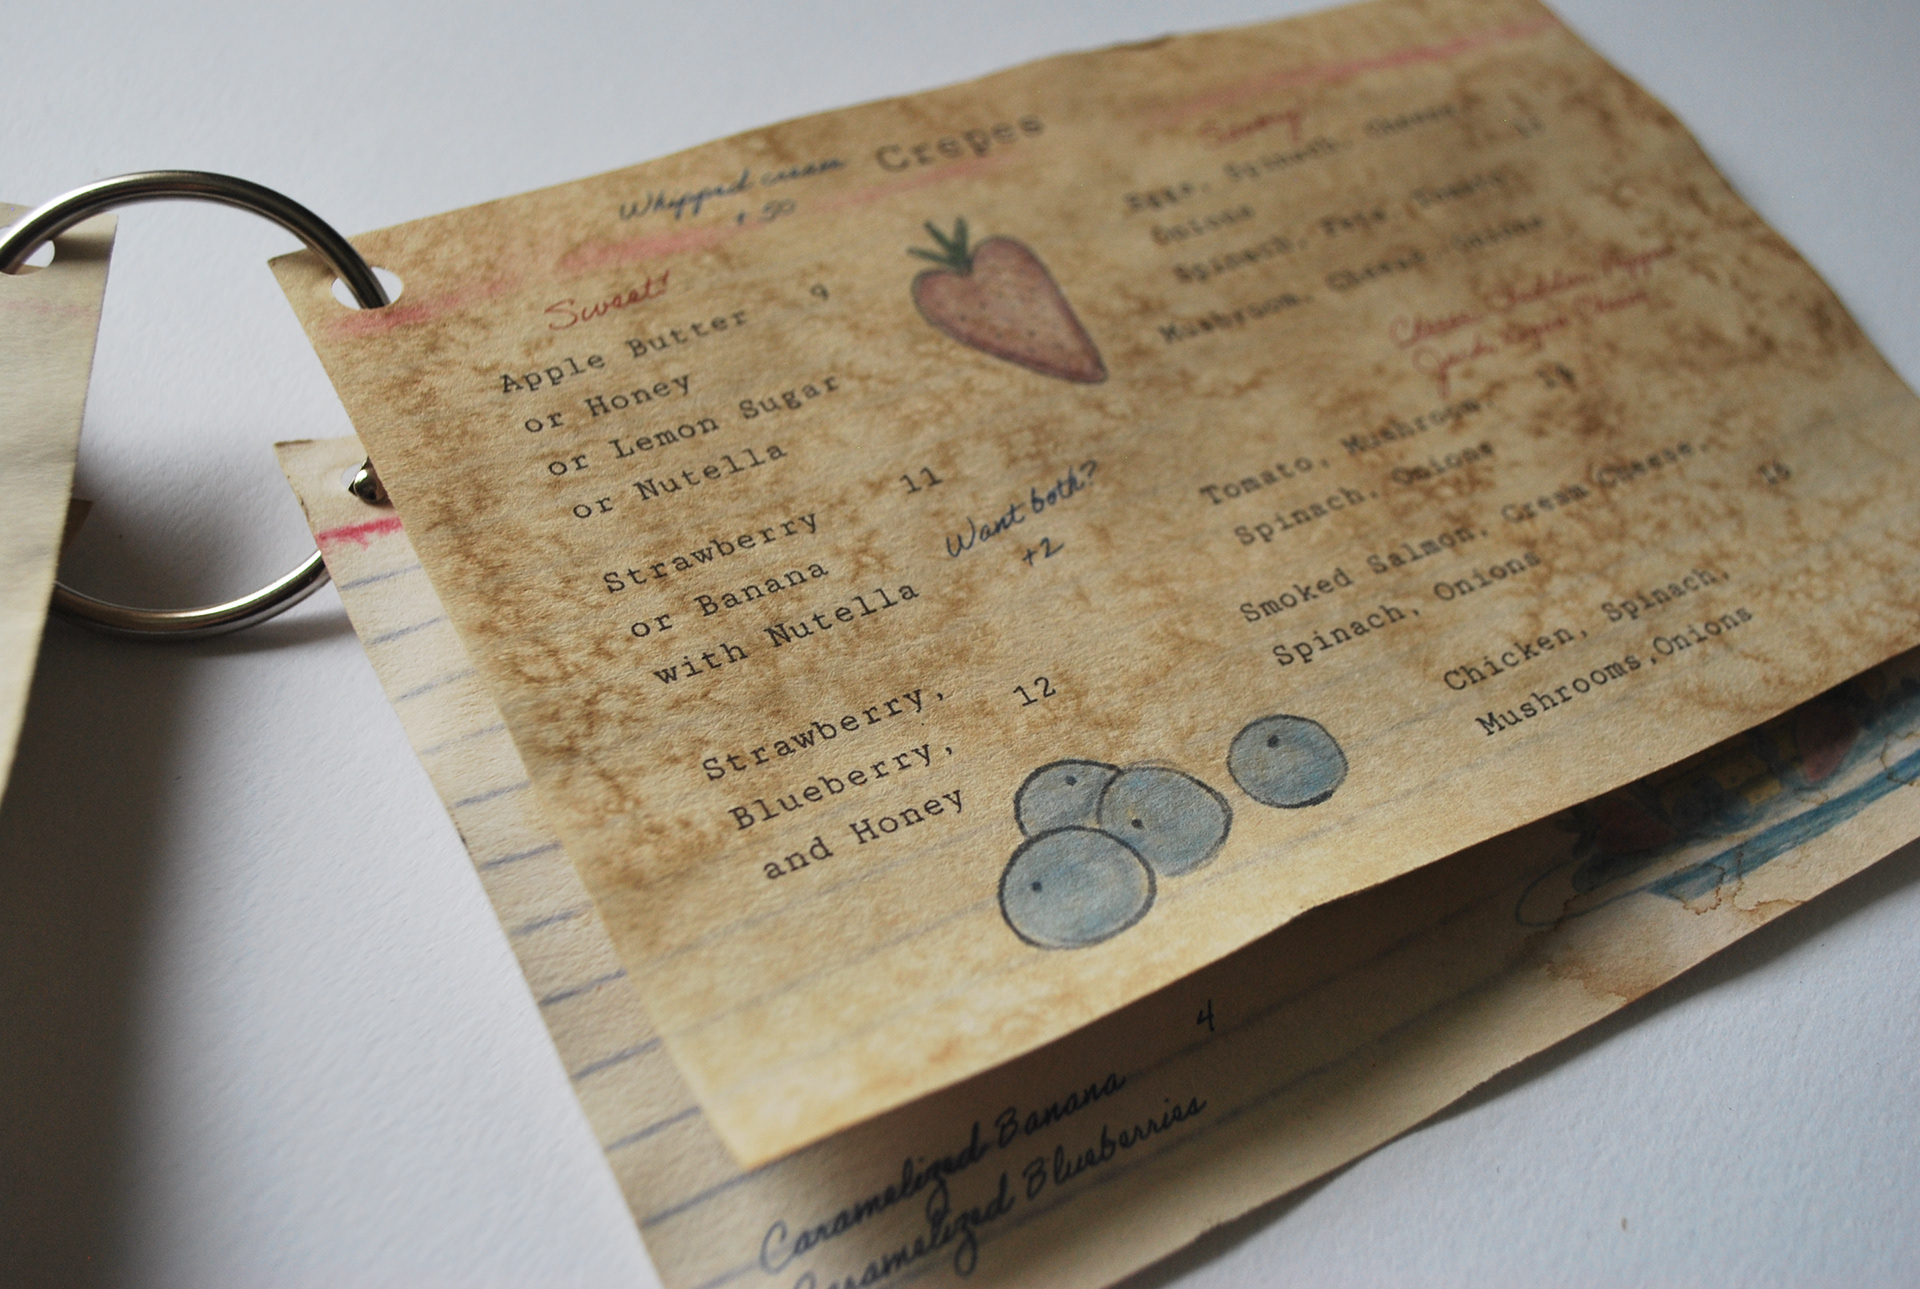 Crepes
Whipped cream
+.50
Sweet!
Apple Butter 9
or Honey
or Lemon Sugar
or Nutella
Strawberry 11
or Banana
with Nutella
Want both?
+2
Strawberry, 12
Blueberry,
and Honey
Savory
Eggs, Spinach, Cheese,
Onions
Spinach, Feta,
Mushroom, Cheese, Onions
Tomato, Mushroom, 14
Spinach, Onions
Smoked Salmon, Cream Cheese, 16
Spinach, Onions
Chicken, Spinach,
Mushrooms,Onions
4
Caramelized Banana
Caramelized Blueberries